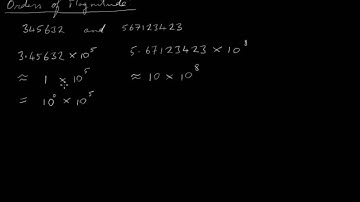 Orders of Magnitude
345632 and 567123423
3.45632 × 10⁵ 5.67123423 × 10⁸
≈ 1 × 10⁵ ≈ 10 × 10⁸
= 10⁰ × 10⁵